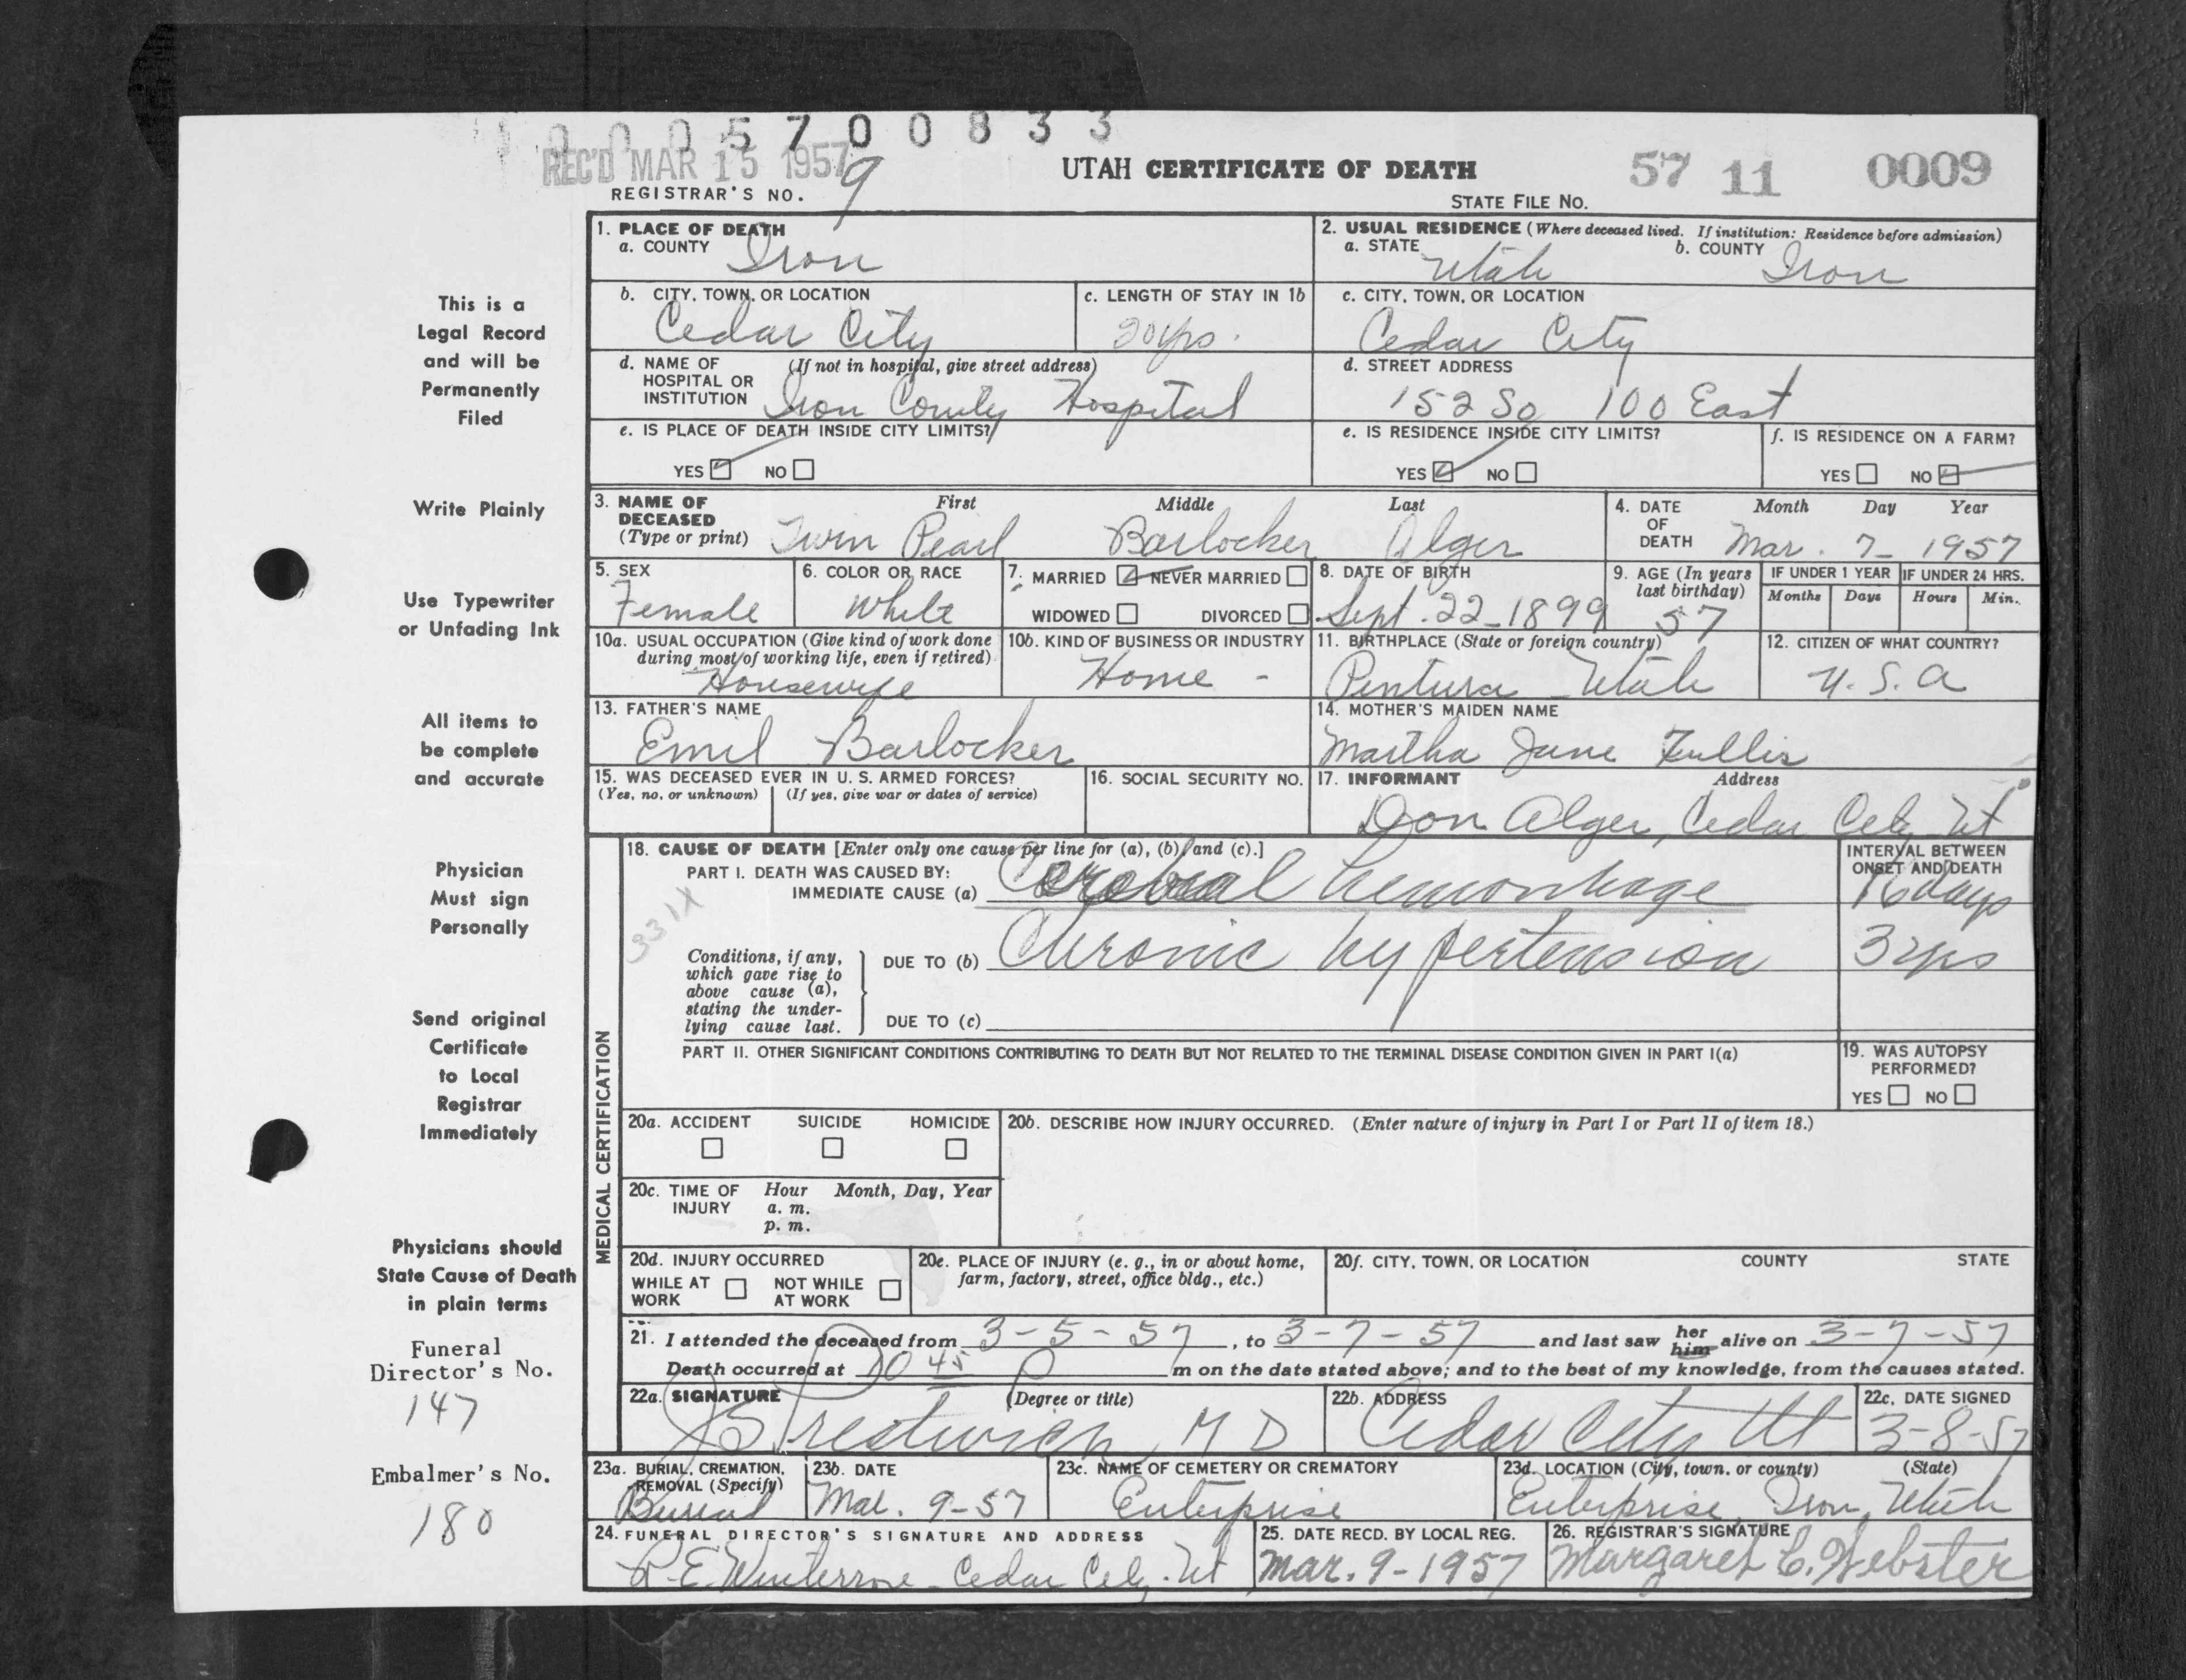 0 0 0 5 7 0 0 8 3 3
REC'D MAR 15 1957
REGISTRAR'S NO. 9
UTAH CERTIFICATE OF DEATH
57 11 0009
STATE FILE NO.
This is a
Legal Record
and will be
Permanently
Filed
Write Plainly
Use Typewriter
or Unfading Ink
All items to
be complete
and accurate
Physician
Must sign
Personally
Send original
Certificate
to Local
Registrar
Immediately
Physicians should
State Cause of Death
in plain terms
Funeral
Director's No.
147
Embalmer's No.
180
1. PLACE OF DEATH
a. COUNTY Iron
2. USUAL RESIDENCE (Where deceased lived. If institution: Residence before admission)
a. STATE Utah b. COUNTY Iron
b. CITY, TOWN, OR LOCATION
Cedar City
c. LENGTH OF STAY IN 1b
20 yrs.
c. CITY, TOWN, OR LOCATION
Cedar City
d. NAME OF HOSPITAL OR INSTITUTION (If not in hospital, give street address)
Iron County Hospital
d. STREET ADDRESS
152 So 100 East
e. IS PLACE OF DEATH INSIDE CITY LIMITS?
YES NO
e. IS RESIDENCE INSIDE CITY LIMITS?
YES NO
f. IS RESIDENCE ON A FARM?
YES NO
3. NAME OF DECEASED (Type or print)
First Middle Last
Twin Pearl Barlocker Alger
4. DATE OF DEATH
Month Day Year
Mar. 7- 1957
5. SEX
Female
6. COLOR OR RACE
White
7. MARRIED NEVER MARRIED
WIDOWED DIVORCED
8. DATE OF BIRTH
Sept. 22-1899
9. AGE (In years last birthday)
57
IF UNDER 1 YEAR IF UNDER 24 HRS.
Months Days Hours Min.
10a. USUAL OCCUPATION (Give kind of work done during most of working life, even if retired)
Housewife
10b. KIND OF BUSINESS OR INDUSTRY
Home -
11. BIRTHPLACE (State or foreign country)
Pintura - Utah
12. CITIZEN OF WHAT COUNTRY?
U.S.A
13. FATHER'S NAME
Emil Barlocker
14. MOTHER'S MAIDEN NAME
Martha Jane Tullis
15. WAS DECEASED EVER IN U. S. ARMED FORCES?
(Yes, no, or unknown) (If yes, give war or dates of service)
16. SOCIAL SECURITY NO.
17. INFORMANT Address
Don Alger, Cedar City Ut
MEDICAL CERTIFICATION
18. CAUSE OF DEATH [Enter only one cause per line for (a), (b) and (c).]
PART I. DEATH WAS CAUSED BY:
IMMEDIATE CAUSE (a) Cerebral hemorrhage
INTERVAL BETWEEN ONSET AND DEATH
16 days
331X
Conditions, if any, which gave rise to above cause (a), stating the underlying cause last.
DUE TO (b) Chronic hypertension
3 yrs
DUE TO (c)
PART II. OTHER SIGNIFICANT CONDITIONS CONTRIBUTING TO DEATH BUT NOT RELATED TO THE TERMINAL DISEASE CONDITION GIVEN IN PART I(a)
19. WAS AUTOPSY PERFORMED?
YES NO
20a. ACCIDENT SUICIDE HOMICIDE
20b. DESCRIBE HOW INJURY OCCURRED. (Enter nature of injury in Part I or Part II of item 18.)
20c. TIME OF INJURY
Hour Month, Day, Year
a. m.
p. m.
20d. INJURY OCCURRED
WHILE AT WORK NOT WHILE AT WORK
20e. PLACE OF INJURY (e. g., in or about home, farm, factory, street, office bldg., etc.)
20f. CITY, TOWN, OR LOCATION COUNTY STATE
21. I attended the deceased from 3-5-57, to 3-7-57 and last saw her him alive on 3-7-57
Death occurred at 10 45 P m on the date stated above; and to the best of my knowledge, from the causes stated.
22a. SIGNATURE (Degree or title)
Prestwich MD
22b. ADDRESS
Cedar City Ut
22c. DATE SIGNED
3-8-57
23a. BURIAL, CREMATION, REMOVAL (Specify)
Burial
23b. DATE
Mar. 9-57
23c. NAME OF CEMETERY OR CREMATORY
Enterprise
23d. LOCATION (City, town, or county) (State)
Enterprise, Iron, Utah
24. FUNERAL DIRECTOR'S SIGNATURE AND ADDRESS
Winterrose - Cedar City. Ut
25. DATE RECD. BY LOCAL REG.
Mar. 9-1957
26. REGISTRAR'S SIGNATURE
Margaret C. Webster